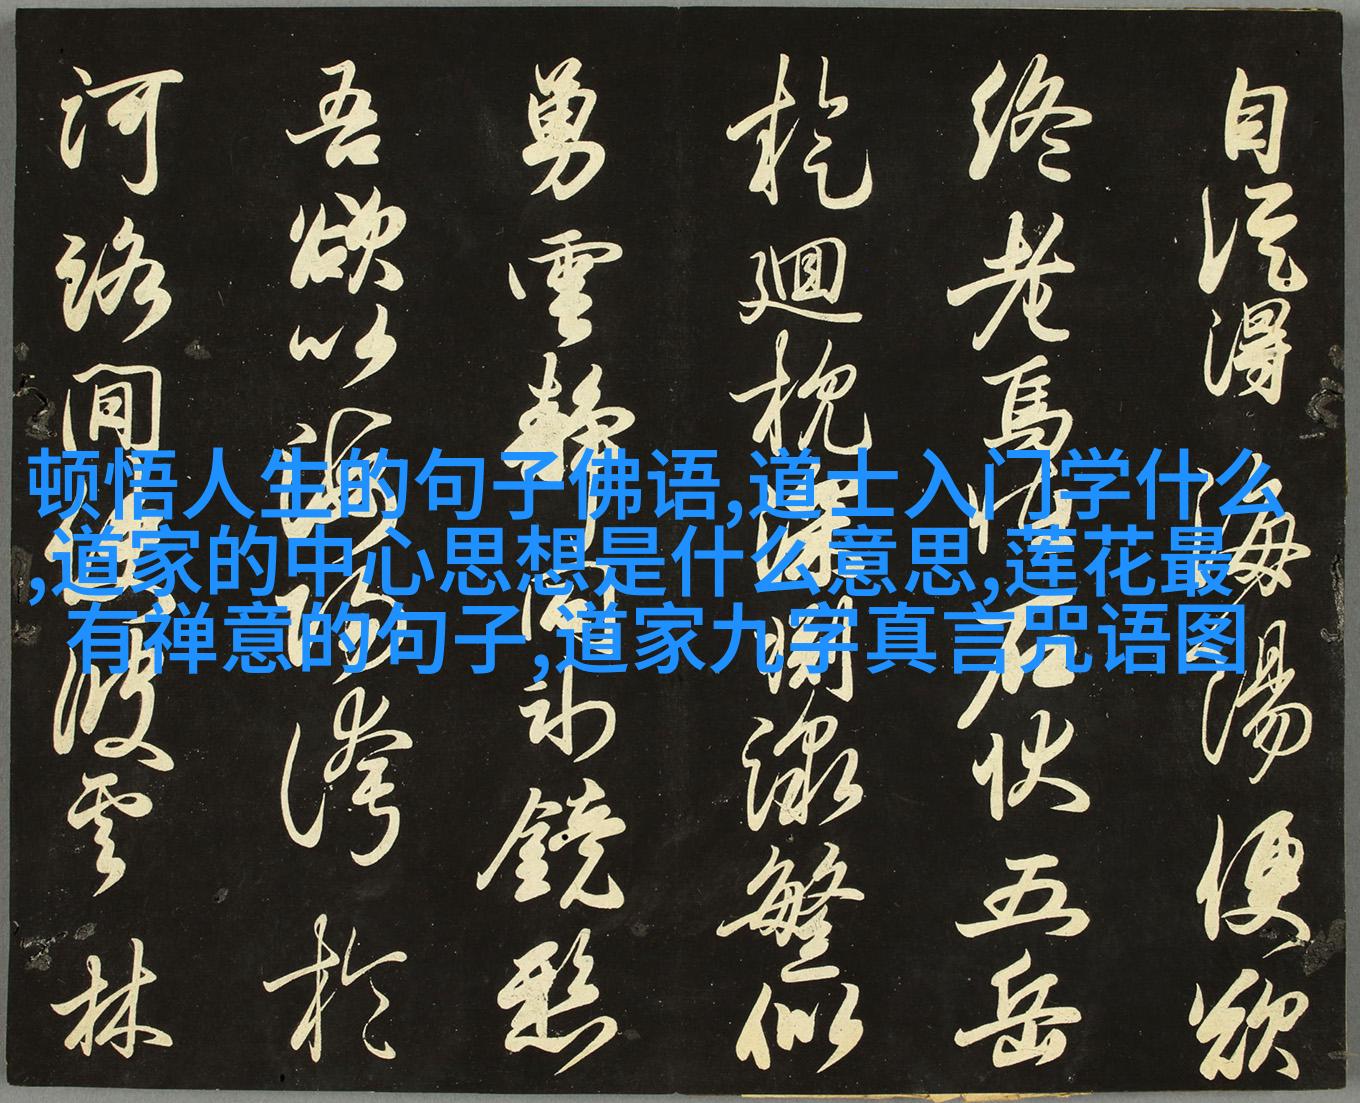 自從得海陽便欲
終老焉忱石伏五岳
於迴枕深澗漱繁似
勇雲靜
鏡愁
吾欲以
誇於
河洛間
波雲林
顿悟人生的句子佛语,道士入门学什么
,道家的中心思想是什么意思,莲花最
有禅意的句子,道家九字真言咒语图